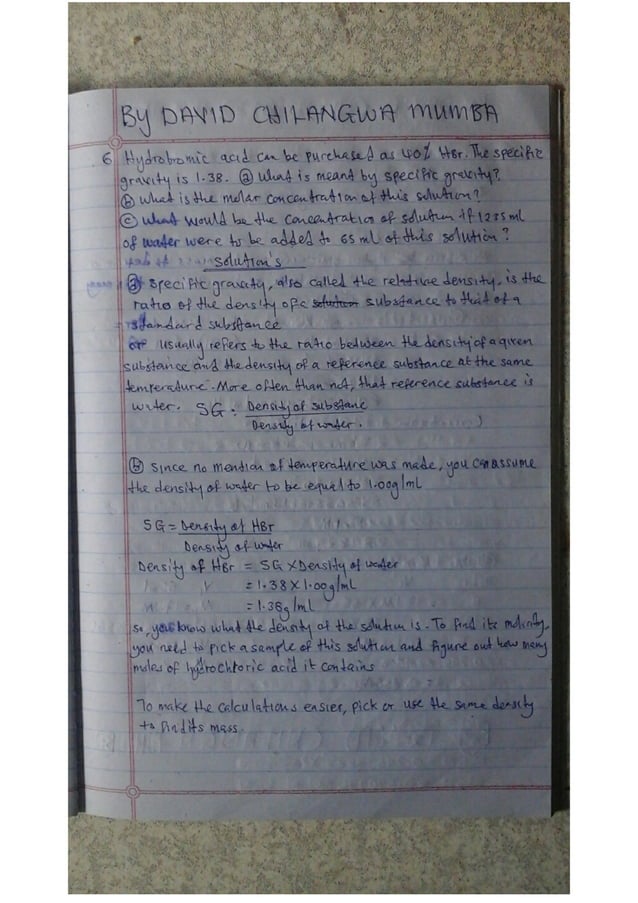 By DAVID CHILANGWA MUMBA
6 Hydrobromic acid can be purchased as 40% HBr. The specific
gravity is 1.38. ⓐ What is meant by specific gravity?
ⓑ What is the molar concentration of this solution?
ⓒ What would be the concentration of solution if 1235 ml
of water were to be added to 65 ml of this solution?
Solution's
ⓐ Specific gravity, also called the relative density, is the
ratio of the density of a substance to that of a
standard substance
or usually refers to the ratio between the density of a given
substance and the density of a reference substance at the same
temperature. More often than not, that reference substance is
water. SG = Density of substane
Density of water.
ⓑ Since no mention of temperature was made, you can assume
the density of water to be equal to 1.00g/ml
SG = Density of HBr
Density of water
Density of HBr = SG × Density of water
= 1.38 × 1.00g/ml
= 1.38g/ml
so, you know what the density of the solution is. To find its molarity,
you need to pick a sample of this solution and figure out how many
moles of hydrochloric acid it contains
To make the calculations easier, pick or use the same density
to find its mass.